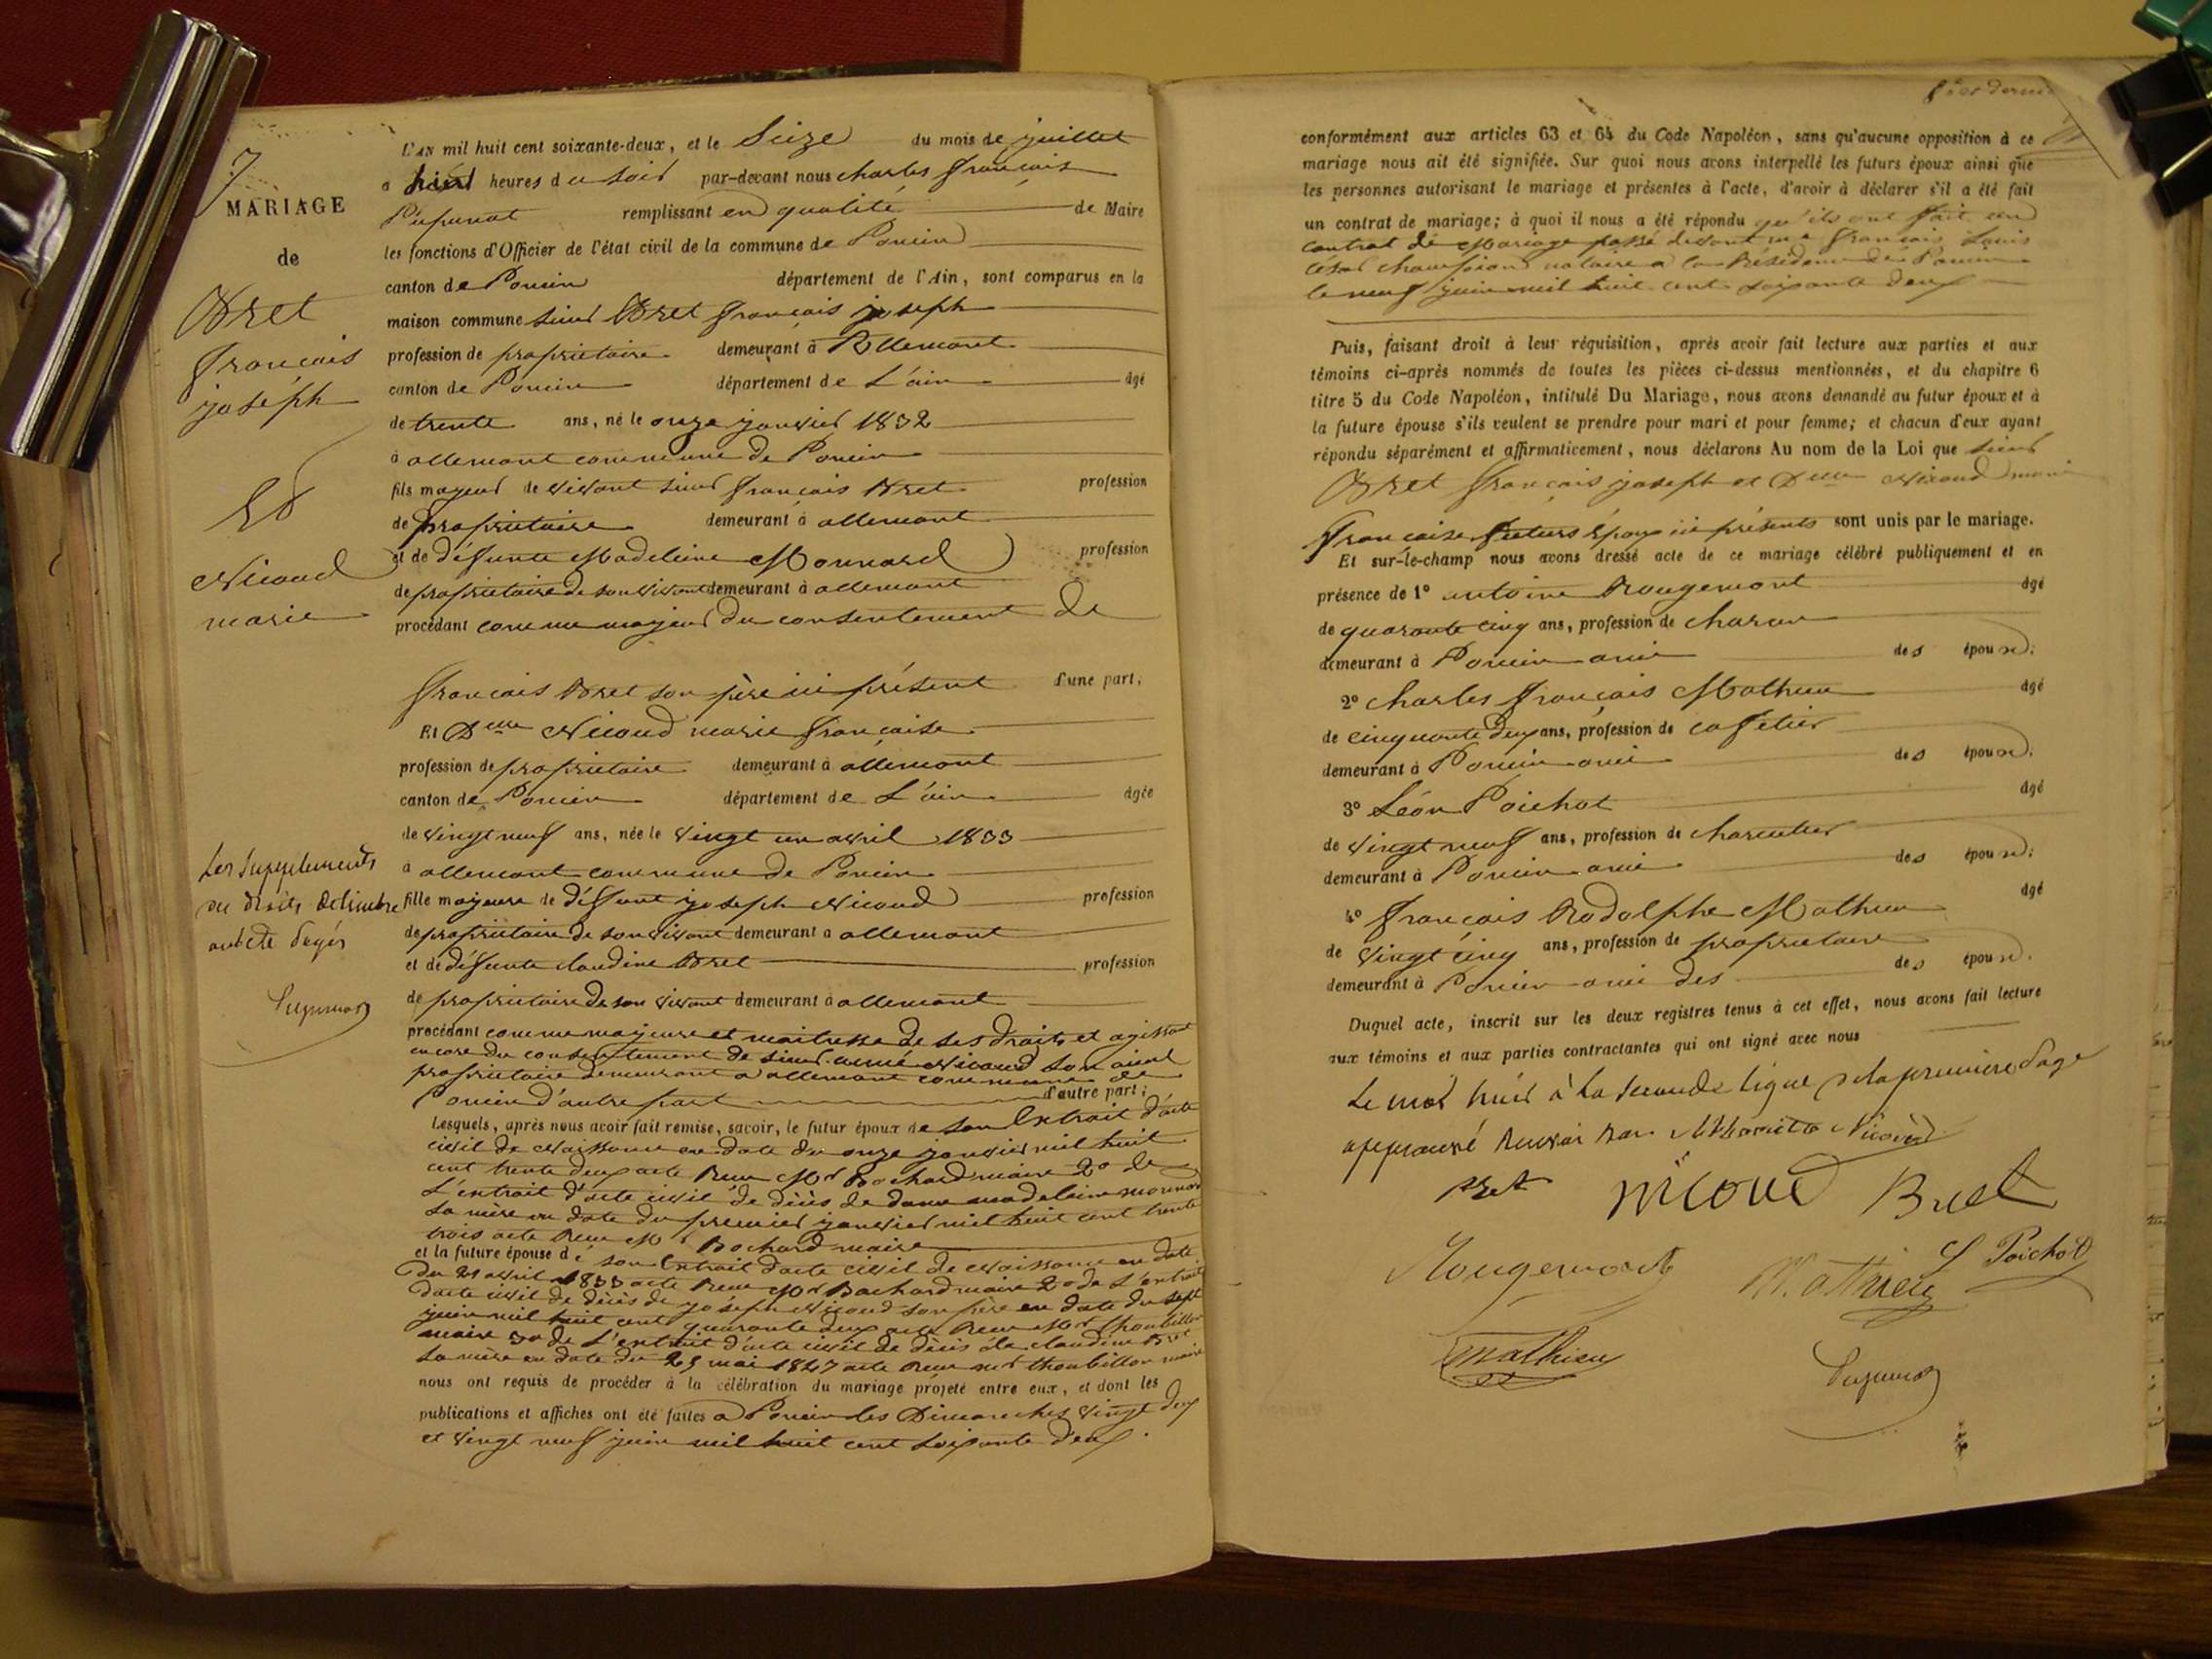 7
MARIAGE
de
Bret
François
joseph
Et
Nicoud
marie
Les supplements
du droits de timbre
ont été payés
L'AN mil huit cent soixante-deux, et le Seize du mois de juillet
a huit heures du soir par-devant nous charles françois
remplissant en qualité de Maire
les fonctions d'Officier de l'état civil de la commune de Poncin
canton de Poncin département de l'Ain, sont comparus en la
maison commune sieur Bret françois joseph
profession de propriétaire demeurant à Allemont
canton de Poncin département de L'ain âgé
de trente ans, né le onze janvier 1832
à allemont commune de Poncin
fils majeur de vivant sieur françois Bret profession
de propriétaire demeurant à allemont
et de défunte Madeleine Monnard profession
de propriétaire de son vivant demeurant à allemont
procédant comme majeur du consentement de
françois Bret son père ici présent d'une part;
Et Dlle Nicoud marie françoise
profession de propriétaire demeurant à allemont
canton de Poncin département de L'ain âgée
de vingt neuf ans, née le vingt un avril 1833
à allemont commune de Poncin
fille majeure de défunt joseph Nicoud profession
de propriétaire de son vivant demeurant à allemont
et de défunte claudine Bret profession
de propriétaire de son vivant demeurant à allemont
procédant comme majeure et maitresse de ses droits et agissant
encore du consentement de sieur aimé Nicoud son aieul
propriétaire demeurant a allemont commune de
Poncin d'autre part d'autre part;
Lesquels, après nous avoir fait remise, savoir, le futur époux de son Extrait d'acte
civil de Naissance en date du onze janvier mil huit
cent trente deux acte Reçu Mr Bochard maire 2º de
L'extrait d'acte civil de décès de dame madeleine monnard
sa mère en date du premier janvier mil huit cent trente
trois acte Reçu Mr Bochard maire
et la future épouse de son Extrait d'acte civil de Naissance en date
du 21 avril 1833 acte Reçu Mr Bochard maire 2º de L'extrait
d'acte civil de décès de joseph Nicoud son père en date du sept
juin mil huit cent quarante deux acte Reçu Mr thoubillon
maire 3º de L'extrait d'acte civil de décès de claudine Bret
sa mère en date du 25 mai 1847 acte Reçu Mr thoubillon maire
nous ont requis de procéder à la célébration du mariage projeté entre eux, et dont les
publications et affiches ont été faites a Poncin les Dimanches vingt deux
et vingt neuf juin mil huit cent soixante deux.
conformément aux articles 63 et 64 du Code Napoléon, sans qu'aucune opposition à ce
mariage nous ait été signifiée. Sur quoi nous avons interpellé les futurs époux ainsi que
les personnes autorisant le mariage et présentes à l'acte, d'avoir à déclarer s'il a été fait
un contrat de mariage; à quoi il nous a été répondu qu'ils ont fait un
contrat de Mariage passé devant me françois Louis
César notaire a la Résidence de Poncin
le neuf juin mil huit cent soixante deux
Puis, faisant droit à leur réquisition, après avoir fait lecture aux parties et aux
témoins ci-après nommés de toutes les pièces ci-dessus mentionnées, et du chapitre 6
titre 5 du Code Napoléon, intitulé Du Mariage, nous avons demandé au futur époux et à
la future épouse s'ils veulent se prendre pour mari et pour femme; et chacun d'eux ayant
répondu séparément et affirmativement, nous déclarons Au nom de la Loi que sieur
Bret françois joseph et Dlle Nicoud marie
françoise futurs époux ici présents sont unis par le mariage.
Et sur-le-champ nous avons dressé acte de ce mariage célébré publiquement et en
présence de 1º antoine Rougemont âgé
de quarante cinq ans, profession de charron
demeurant à Poncin ami des époux;
2º charles françois Mathieu âgé
de cinquante deux ans, profession de cafetier
demeurant à Poncin ami des époux;
3º Léon Poichot âgé
de vingt neuf ans, profession de charcutier
demeurant à Poncin ami des époux;
4º françois Rodolphe Mathieu âgé
de vingt cinq ans, profession de propriétaire
demeurant à Poncin ami des des époux.
Duquel acte, inscrit sur les deux registres tenus à cet effet, nous avons fait lecture
aux témoins et aux parties contractantes qui ont signé avec nous
Le mot huit à la seconde ligne de la première page
approuvé
Bret Nicoud Bret
Rougemont Mathieu L Poichot
Mathieu